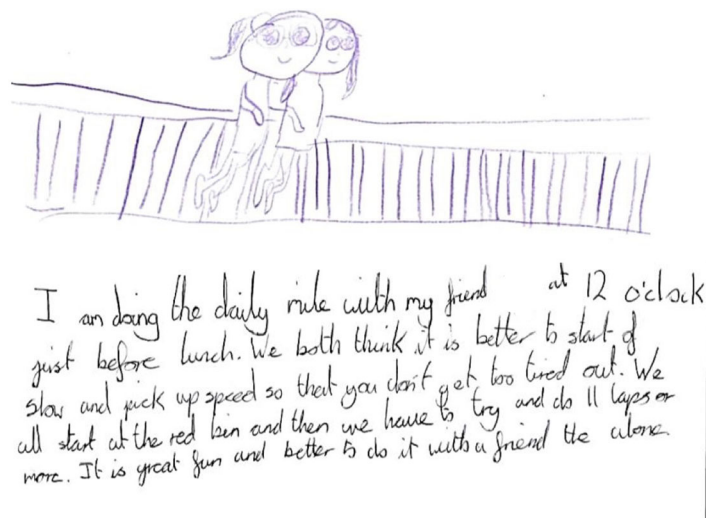 I am doing the daily mile with my friend at 12 o'clock
just before lunch. We both think it is better to start of
slow and pick up speed so that you don't get too tired out. We
all start at the red bin and then we have to try and do 11 laps or
more. It is great fun and better to do it with a friend the alone.